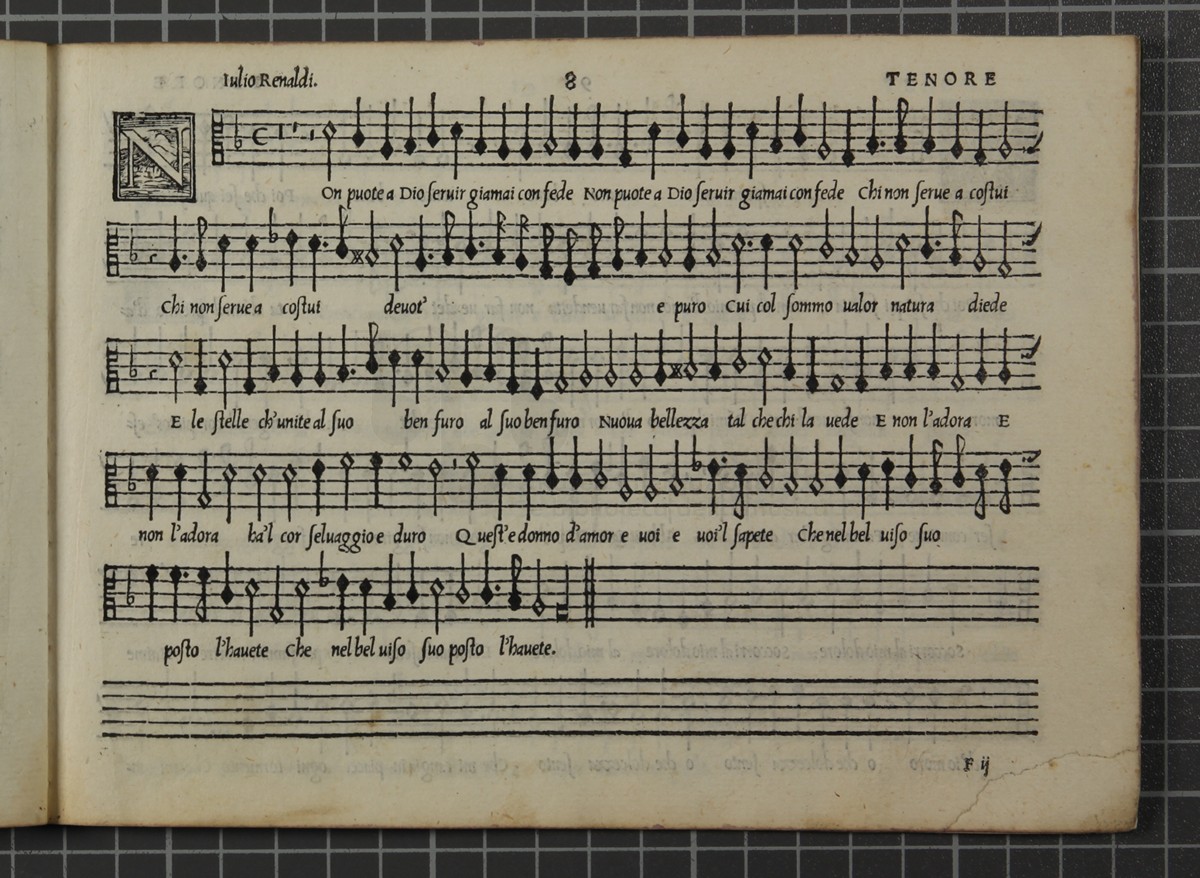 Iulio Renaldi. 8 TENORE
NOn puote a Dio ſeruir giamai con fede Non puote a Dio ſeruir giamai con fede Chi non ſerue a coſtui
Chi non ſerue a coſtui deuot' e puro Cui col ſommo ualor natura diede
E le ſtelle ch'unite al ſuo ben furo al ſuo ben furo Nuoua bellezza tal che chi la uede E non l'adora E
non l'adora ha'l cor ſeluaggio e duro Queſt'e donno d'amor e uoi e uoi'l ſapete Che nel bel uiſo ſuo
poſto l'hauete Che nel bel uiſo ſuo poſto l'hauete.
F ij